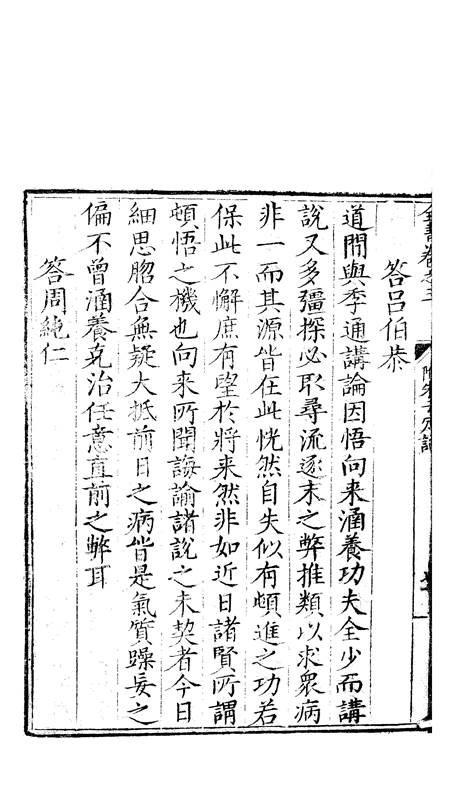 答呂伯恭
道間與季通講論因悟向来涵養功夫全少而講
說又多彊探必取尋流逐末之弊推類以求衆病
非一而其源皆在此恍然自失似有頓進之功若
保此不懈庶有望於将来然非如近日諸賢所謂
頓悟之機也向来所聞誨諭諸說之未契者今日
細思脗合無疑大抵前日之病皆是氣質躁妄之
偏不曾涵養克治任意直前之弊耳
答周純仁